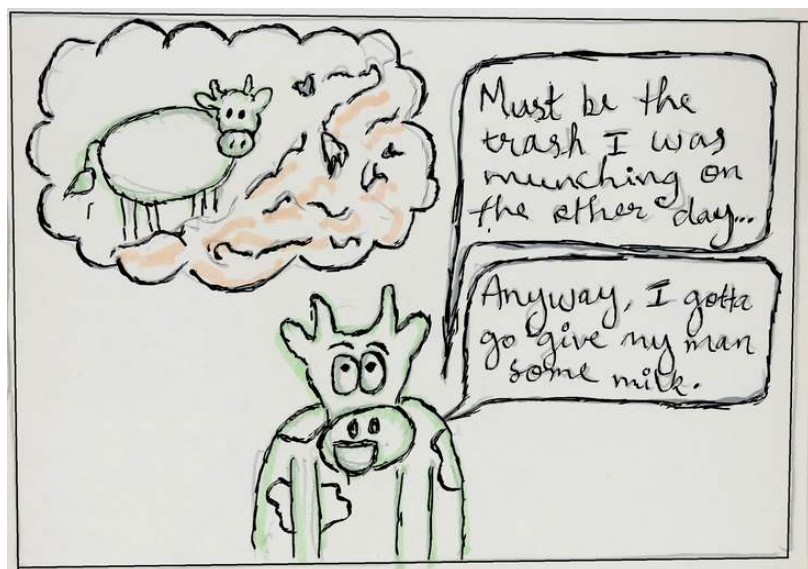 Must be the
trash I was
munching on
the other day...
Anyway, I gotta
go give my man
some milk.